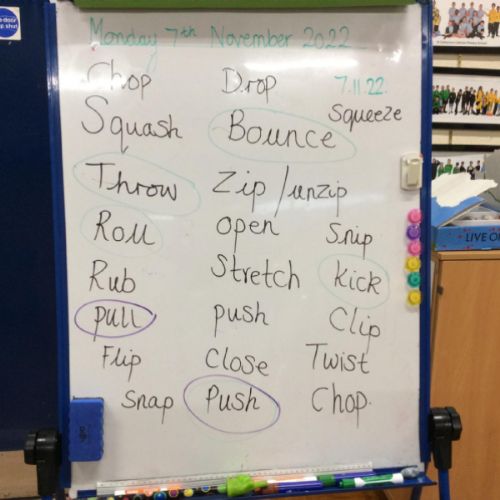 Monday 7th November 2022
Chop Drop 7.11.22.
Squash Bounce Squeeze
Throw Zip/unzip
Roll open Snip
Rub Stretch Kick
pull push Clip
Flip Close Twist
Snap Push Chop.
LIVE O